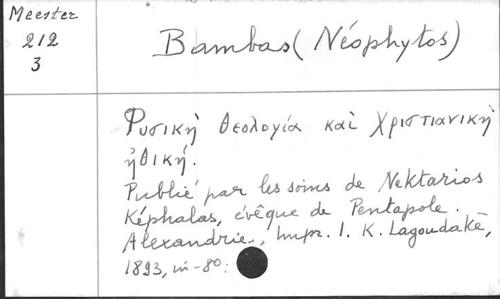 Meester
212
3
Bambas (Néophytos)
Φυσικὴ θεολογία καὶ Χριστιανικὴ
ἠθική.
Publié par les soins de Nektarios
Képhalas, évêque de Pentapole.
Alexandrie, Impr. I. K. Lagoudakē,
1893, in-8o.